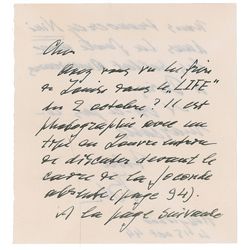 Cher
Avez vous vu la
de Louis dans le „LIFE"
du 2 octobre? Il est
photographié avec un
type au Louvre entrain
de discuter devant le
cadre de la Joconde
absente (page 94).
A la page suivante